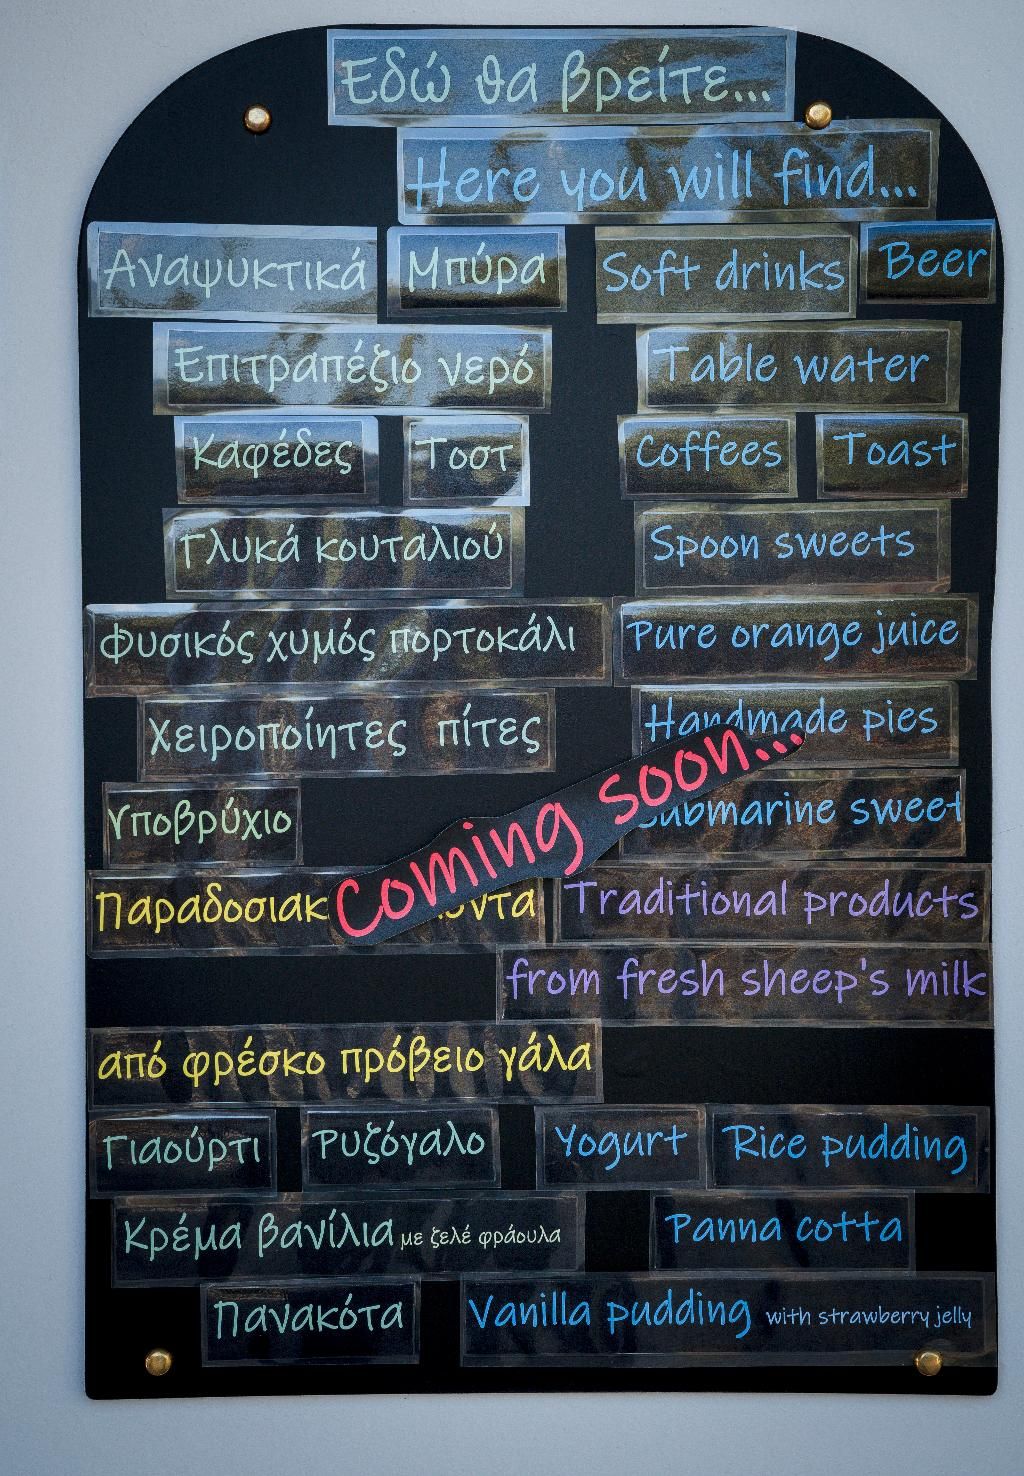 Εδώ θα βρείτε...
Here you will find...
Αναψυκτικά Μπύρα Soft drinks Beer
Επιτραπέζιο νερό Table water
Καφέδες Τοστ Coffees Toast
Γλυκά κουταλιού Spoon sweets
Φυσικός χυμός πορτοκάλι Pure orange juice
Χειροποίητες πίτες Handmade pies
Coming soon...
Υποβρύχιο sweet
Traditional products
from fresh sheep's milk
από φρέσκο πρόβειο γάλα
Γιαούρτι Ρυζόγαλο Yogurt Rice pudding
Κρέμα βανίλια με ζελέ φράουλα Panna cotta
Πανακότα Vanilla pudding with strawberry jelly